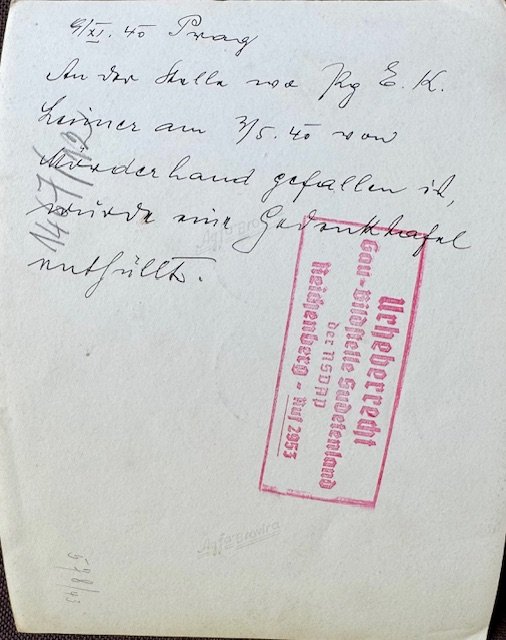 9/XI. 40 Prag
An der Stelle wo Pg E. K.
am 3/5. 40 von
Mörderhand gefallen ist,
wurde eine Gedenktafel
enthüllt.
Urheberrecht
Gau-Bildstelle Sudetenland
der NSDAP
Reichenberg - Ruf 2953